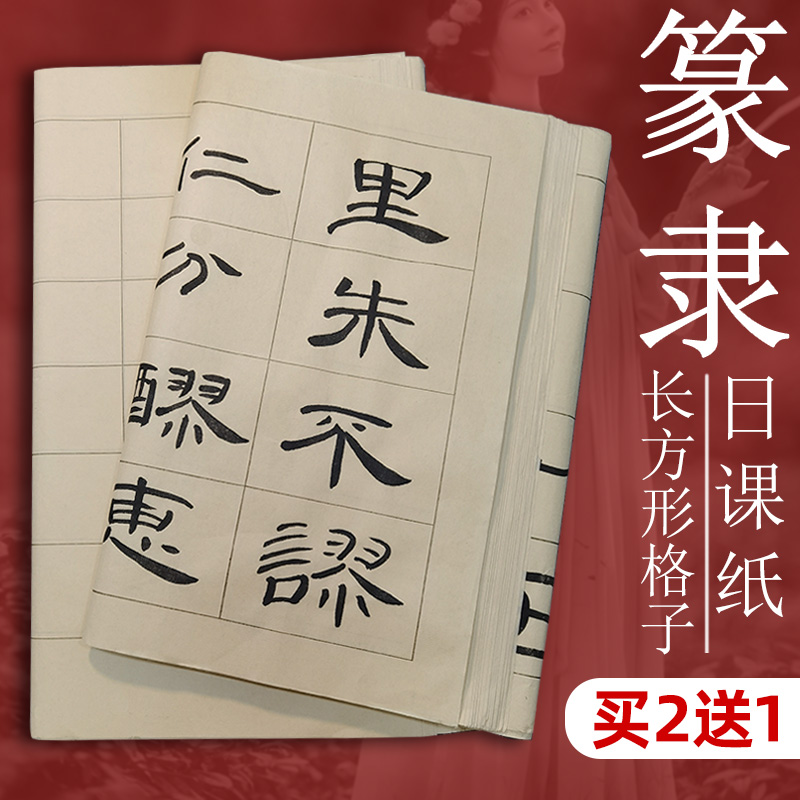 篆隶
日课纸
长方形格子
里朱不謬
仁分醪惠
买2送1